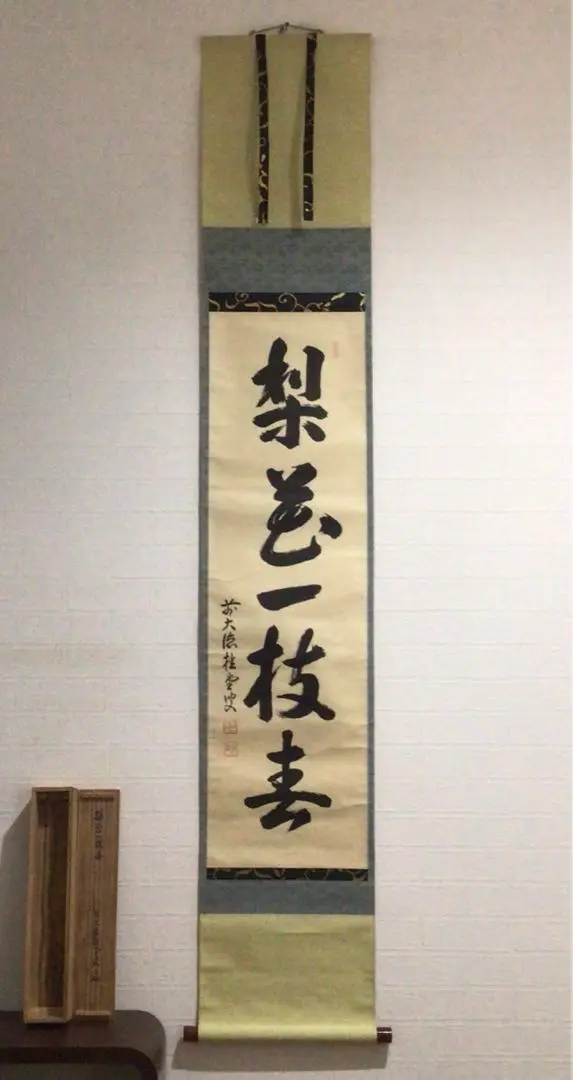 梨花一枝春
前大徳桂堂叟